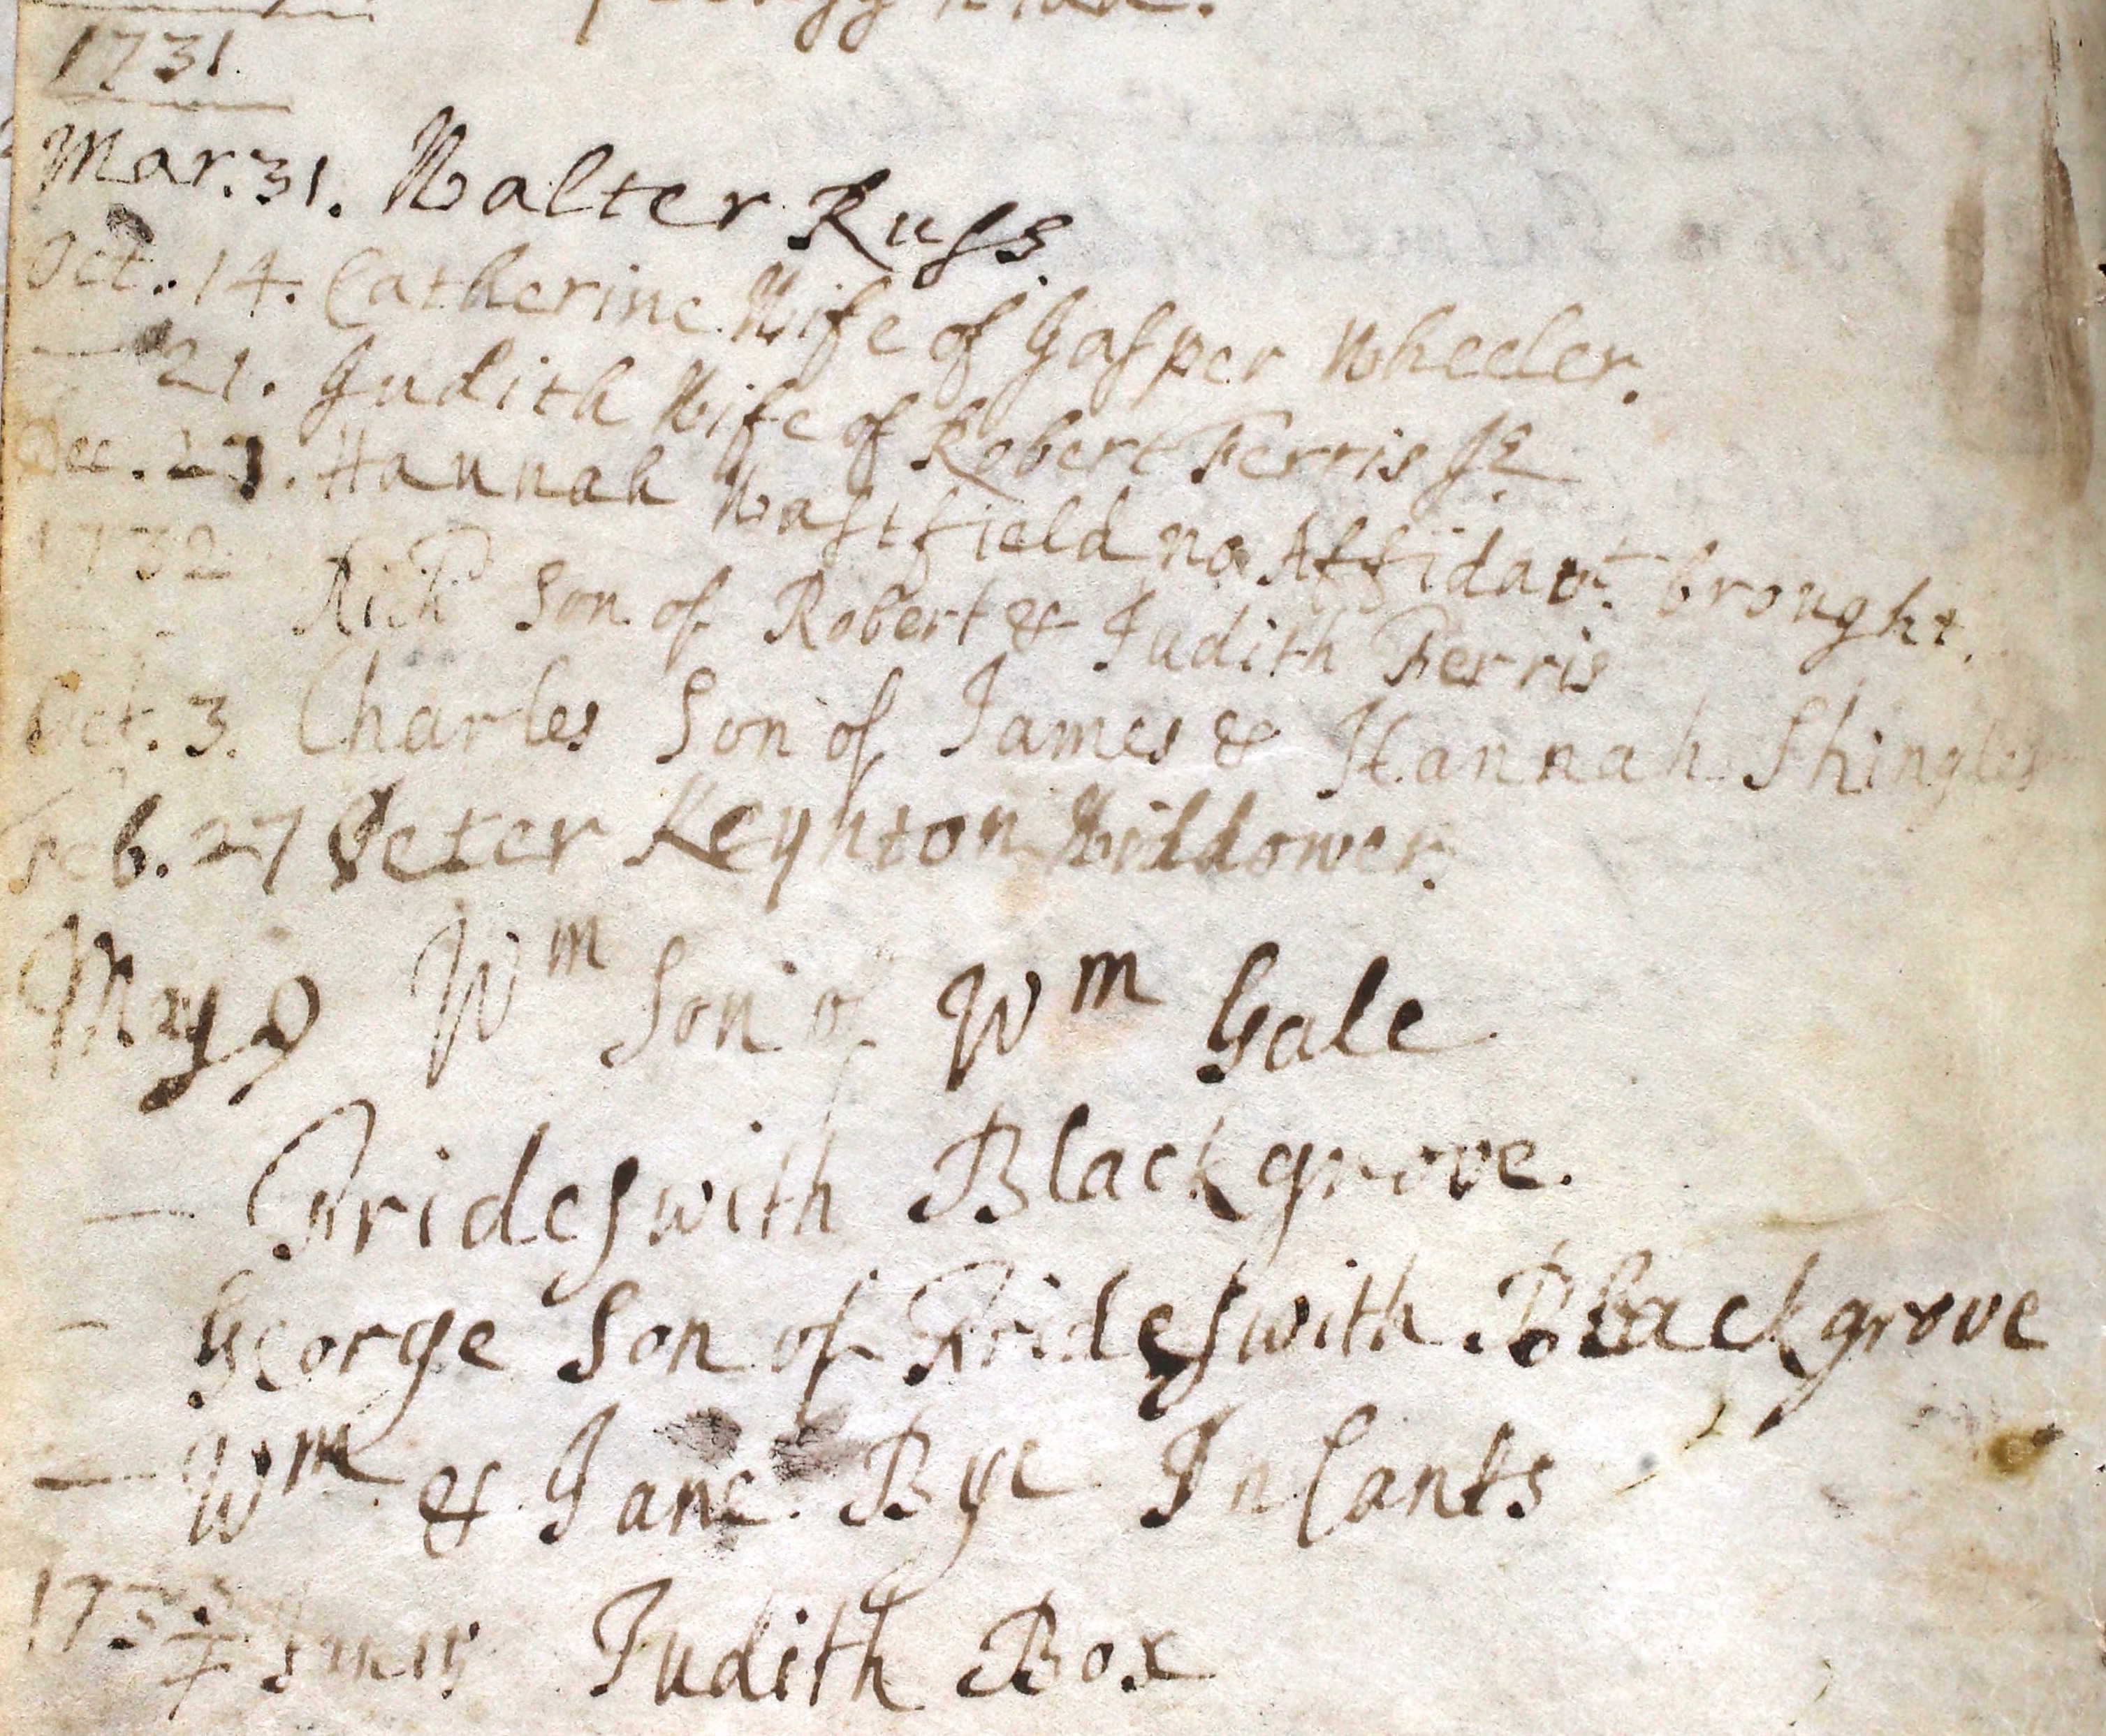 1731.
Mar. 31. Walter Russ.
Oct. 14. Catherine Wife of Jasper Wheeler.
— 21. Judith Wife of Robert Ferris Jr.
Dec. 23. Hannah Wastfield no Affidavt. brought.
1732
Richd Son of Robert & Judith Ferris
Oct. 3. Charles Son of James & Hannah Shingles
Feb. 27 Peter Keynton Widdower.
May 9 Wm Son of Wm Gale
— Frideswith Blackgrove.
– George Son of Frideswith Blackgrove
— Wm & Jane Bye Infants
Judith Box